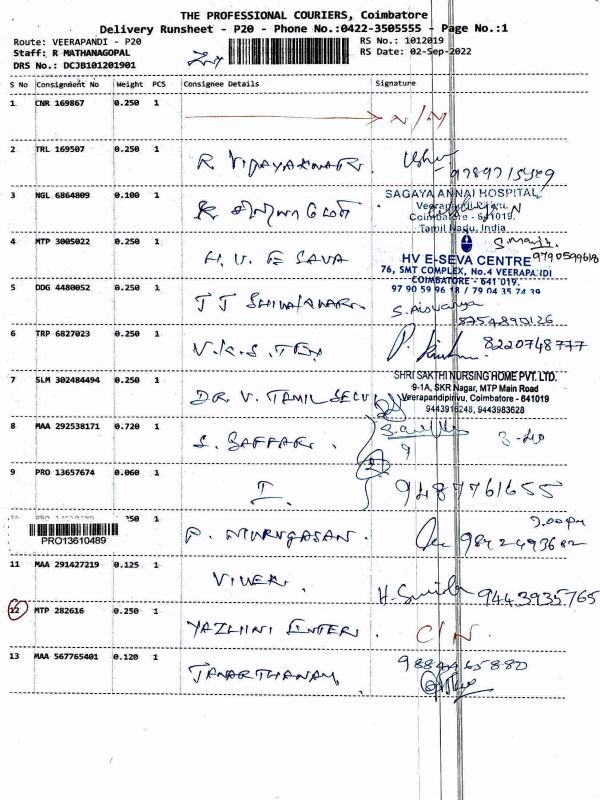 THE PROFESSIONAL COURIERS, Coimbatore
Delivery Runsheet - P20 - Phone No.:0422-3505555 - Page No.:1
Route: VEERAPANDI - P20
RS No.: 1012019
Staff: R MATHANAGOPAL
RS Date: 02-Sep-2022
DRS No.: DCJB101201901
S No Consignment No Weight PCS Consignee Details Signature
1 CNR 169867 0.250 1 N/N
2 TRL 169507 0.250 1 R VIJAYAKUMAR.
3 NGL 6864809 0.100 1
SAGAYA ANNAI HOSPITAL,
Veerapandi Pirivu,
Coimbatore - 641019.
Tamil Nadu, India
4 MTP 3005022 0.250 1 H.V. E SAVA
9790599618
HV E-SEVA CENTRE
76, SMT COMPLEX, No.4 VEERAPANDI
COIMBATORE - 641 019.
97 90 59 96 18 / 79 04 35 74 39
5 DDG 4480052 0.250 1 S. Aisvarya
8754890126
6 TRP 6827023 0.250 1 V.K.S. TEX
8220748777
7 SLM 302484494 0.250 1 DR. V. TAMIL SELVI
SHRI SAKTHI NURSING HOME PVT. LTD.
9-1A, SKR Nagar, MTP Main Road
Veerapandipirivu, Coimbatore - 641019
9443916248, 9443983628
8 MAA 292538171 0.720 1 S. SAFFARI. 3-40
9 PRO 13657674 0.060 1 I. 2 9487761655
1
PRO13610489
P. MURUGASAN. 3.00pm
9842493682
11 MAA 291427219 0.125 1 VIVEK.
9443935765
12 MTP 282616 0.250 1 YAZHINI ENTER. C/N
13 MAA 567765401 0.120 1 JANARTHANAM
9884465880